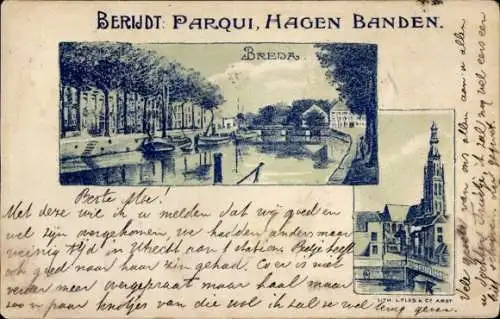 BERIJDT: PARQUI, HAGEN BANDEN.
BREDA
Beste Moe!
Met deze wil ik u melden dat wij goed en
wel zijn aangekomen we hadden anders maar
weinig tijd in Utrecht van 't station. Betje heeft
ook goed naar haar zin gehad. Ea er is niet
verder meer overgepraat maar haal maar
zoo 'n paar hondjes van die wol ik zal ze wel terug geven.
Vele van ons allen aan u allen
ik zal nog wel eens
LITH. L. FLES & Co AMST